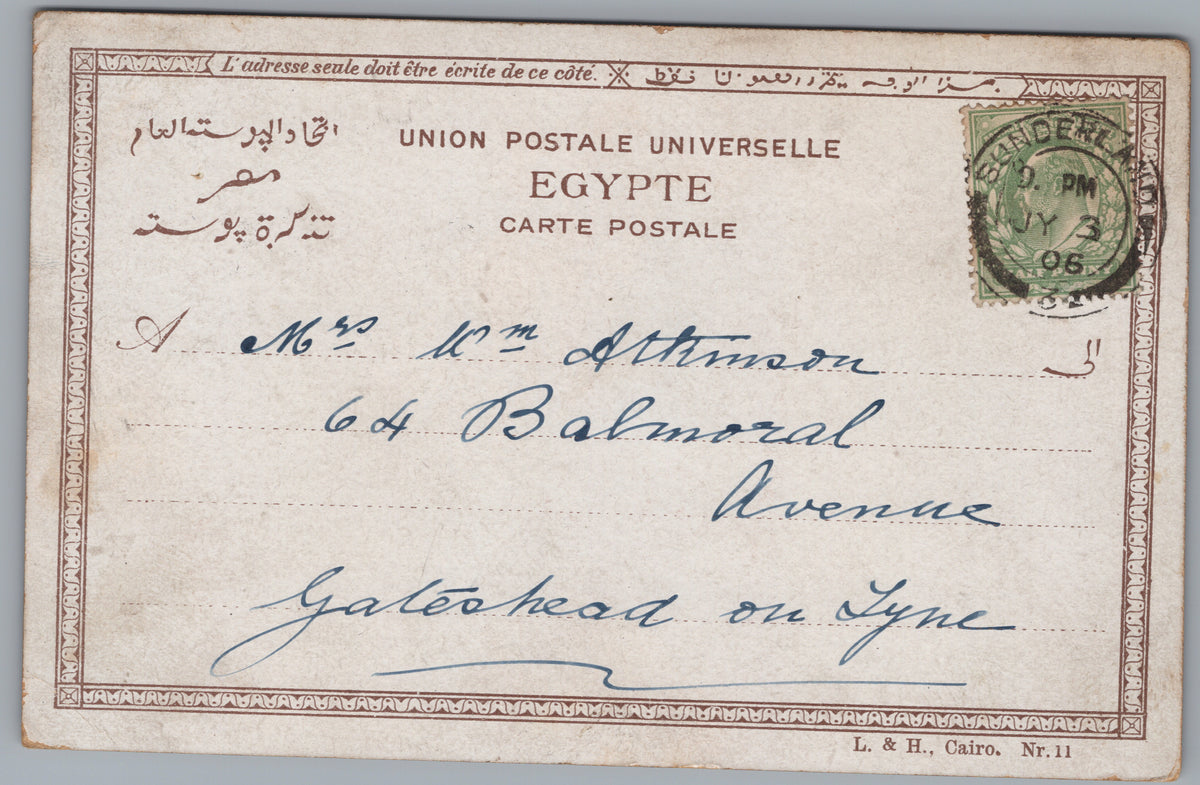 L'adresse seule doit être écrite de ce côté.
اتحاد البوسته العام
مصر
تذكرة بوسته
UNION POSTALE UNIVERSELLE
EGYPTE
CARTE POSTALE
SUNDERLAND
9. PM
JY 3
06
A Mrs Wm Atkinson
64 Balmoral
Avenue
Gateshead on Tyne
L. & H., Cairo. Nr. 11